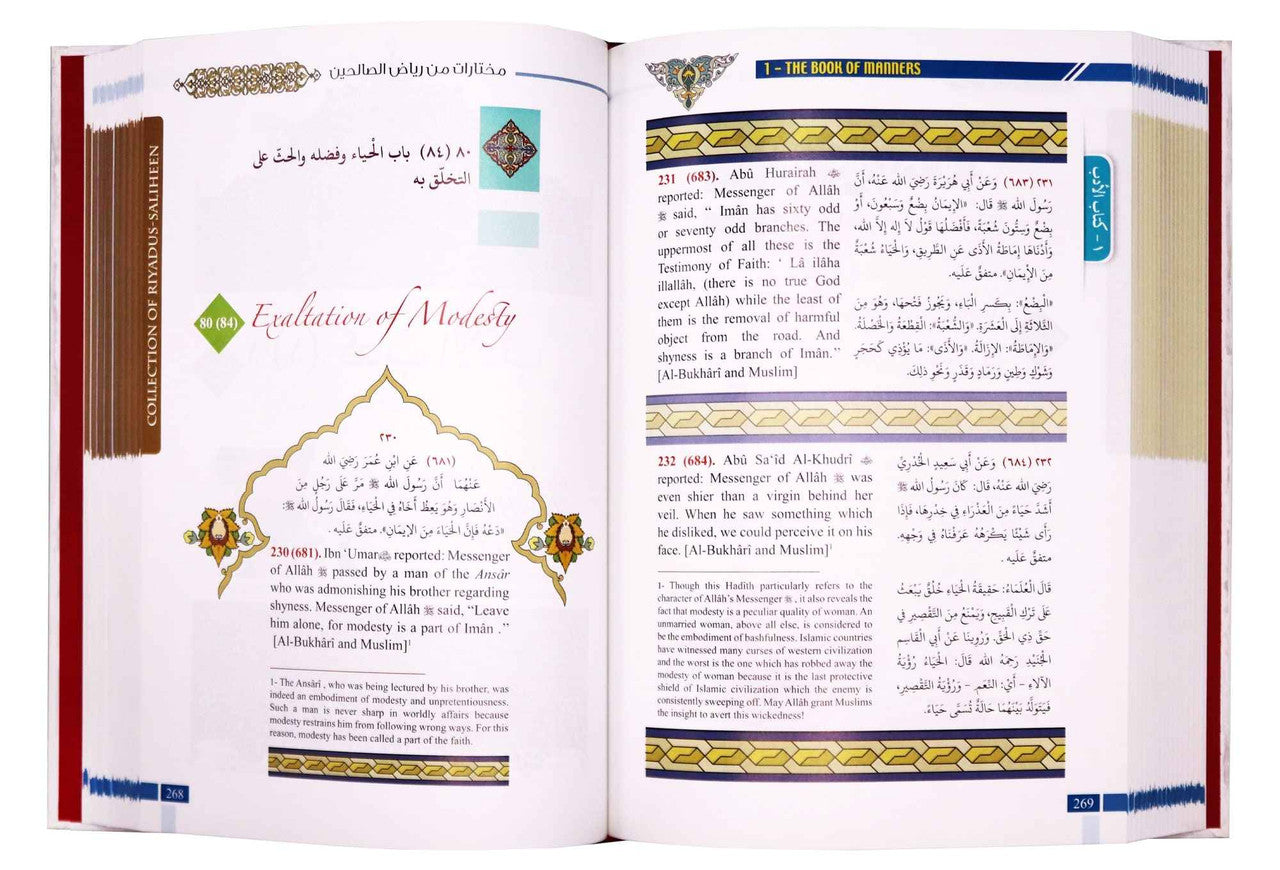 مختارات من رياض الصالحين
COLLECTION OF RIYADUS-SALIHEEN
٨٠ (٨٤) باب الْحياء وفضله والحثّ على
التخلّق به
80 (84)
Exaltation of Modesty
٢٣٠
(٦٨١) عَنِ ابْنِ عُمَرَ رَضِيَ الله
عَنْهُمَا أَنَّ رَسُولَ الله ﷺ مَرَّ عَلَى رَجُلٍ مِنَ
الأَنْصَارِ وَهُوَ يَعِظُ أَخَاهُ فِي الْحَيَاءِ، فَقَالَ رَسُولُ الله ﷺ:
«دَعْهُ فَإِنَّ الْحَيَاءَ مِنَ الإِيمَانِ». متفقٌ عَلَيه.
230 (681). Ibn ‘Umar reported: Messenger
of Allâh ﷺ passed by a man of the Ansâr
who was admonishing his brother regarding
shyness. Messenger of Allâh ﷺ said, “Leave
him alone, for modesty is a part of Imân .”
[Al-Bukhârî and Muslim]¹
1- The Ansârî , who was being lectured by his brother, was
indeed an embodiment of modesty and unpretentiousness.
Such a man is never sharp in worldly affairs because
modesty restrains him from following wrong ways. For this
reason, modesty has been called a part of the faith.
268
1 - THE BOOK OF MANNERS
١ - كتاب الأدب
231 (683). Abû Hurairah
reported: Messenger of Allâh
ﷺ said, “ Imân has sixty odd
or seventy odd branches. The
uppermost of all these is the
Testimony of Faith: ‘ Lâ ilâha
illallâh, (there is no true God
except Allâh) while the least of
them is the removal of harmful
object from the road. And
shyness is a branch of Imân.”
[Al-Bukhârî and Muslim]
٢٣١ (٦٨٣) وَعَنْ أَبي هُرَيْرَةَ رَضِيَ الله عَنْهُ، أَنَّ
رَسُولَ الله ﷺ قال: «الإِيمَانُ بِضْعٌ وَسَبْعُونَ، أَوْ
بِضْعٌ وَسِتُّونَ شُعْبَةً، فَأَفْضَلُهَا قَوْلُ لاَ إله إلاَّ الله،
وَأَدْنَاهَا إمَاطَةُ الأَذَى عَنِ الطَّرِيقِ، وَالْحَيَاءُ شُعْبَةٌ
مِنَ الإِيمَانِ». متفقٌ عَلَيه.
«الْبِضْعُ»: بِكَسرِ الْبَاءِ، وَيَجُوزُ فَتْحُهَا، وَهُوَ مِنَ
الثَّلاَثَةِ إلَى الْعَشَرَةِ. «وَالشُّعْبَةُ»: الْقِطْعَةُ وَالْخَصْلَةُ.
«وَالإِمَاطَةُ»: الإِزَالَةُ. «وَالأَذَى»: مَا يُؤْذِي كَحَجَرٍ
وَشَوْكٍ وَطِينٍ وَرَمَادٍ وَقَذَرٍ وَنَحْوِ ذلِكَ.
232 (684). Abû Sa‘îd Al-Khudrî
reported: Messenger of Allâh ﷺ was
even shier than a virgin behind her
veil. When he saw something which
he disliked, we could perceive it on his
face. [Al-Bukhârî and Muslim]¹
٢٣٢ (٦٨٤) وَعَنْ أَبي سَعِيدٍ الْخُدْرِيِّ
رَضِيَ الله عَنْهُ، قال: كَانَ رَسُولُ الله ﷺ
أَشَدَّ حَيَاءً مِنَ الْعَذْرَاءِ فِي خِدْرِهَا، فَإِذَا
رَأَى شَيْئًا يَكْرَهُهُ عَرَفْنَاهُ فِي وَجْهِهِ.
متفقٌ عَلَيه.
1- Though this Hadîth particularly refers to the
character of Allâh’s Messenger ﷺ , it also reveals the
fact that modesty is a peculiar quality of woman. An
unmarried woman, above all else, is considered to
be the embodiment of bashfulness. Islamic countries
have witnessed many curses of western civilization
and the worst is the one which has robbed away the
modesty of woman because it is the last protective
shield of Islamic civilization which the enemy is
consistently sweeping off. May Allâh grant Muslims
the insight to avert this wickedness!
قَالَ الْعُلَمَاءُ: حَقِيقَةُ الْحَيَاءِ خُلُقٌ يَبْعَثُ
عَلَى تَرْكِ الْقَبِيحِ، وَيَمْنَعُ مِنَ التَّقْصِيرِ فِي
حَقِّ ذِي الْحَقِّ. وَرُوِينَا عَنْ أَبي الْقَاسِمِ
الْجُنَيْدِ رَحِمَهُ الله قَالَ: الْحَيَاءُ رُؤْيَةُ
الآلاءِ - أَيْ: النِّعَمِ - وَرُؤْيَةُ التَّقْصِيرِ،
فَيَتَوَلَّدُ بَيْنَهُمَا حَالَةٌ تُسَمَّى حَيَاءً.
269